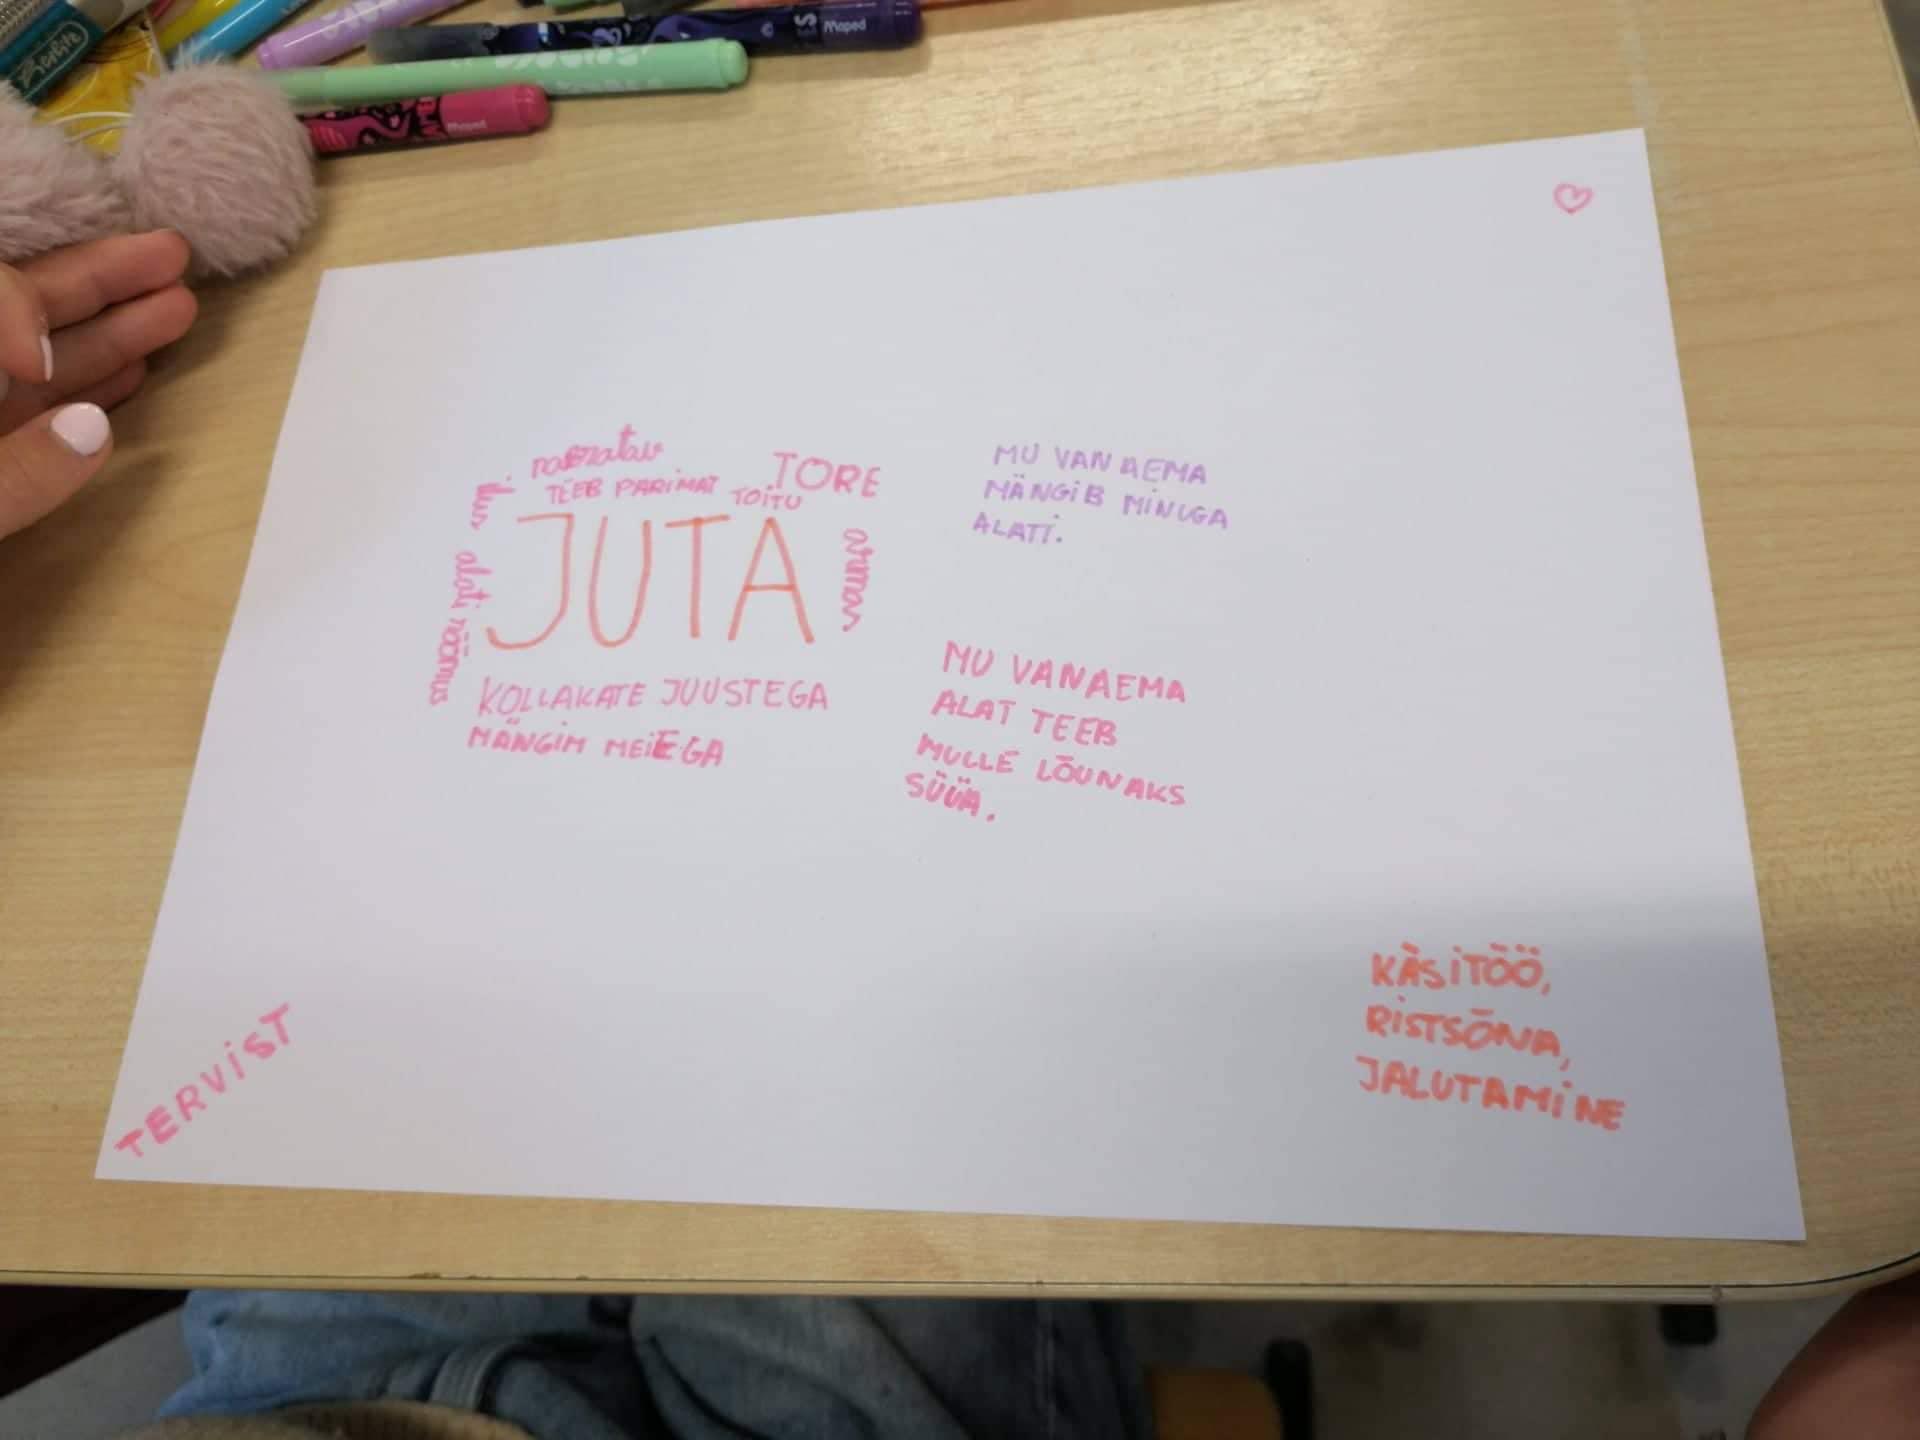 naeratav
TEEB PARIMAT TOITU
TORE
ilus
alati rõõmus
JUTA
armas
KOLLAKATE JUUSTEGA
MÄNGIM MEIEGA
MU VANAEMA
MÄNGIB MINUGA
ALATI.
MU VANAEMA
ALAT TEEB
MULLE LÕUNAKS
SÜÜA.
KÄSITÖÖ,
RISTSÕNA,
JALUTAMINE
TERVIST
Maped
Maped